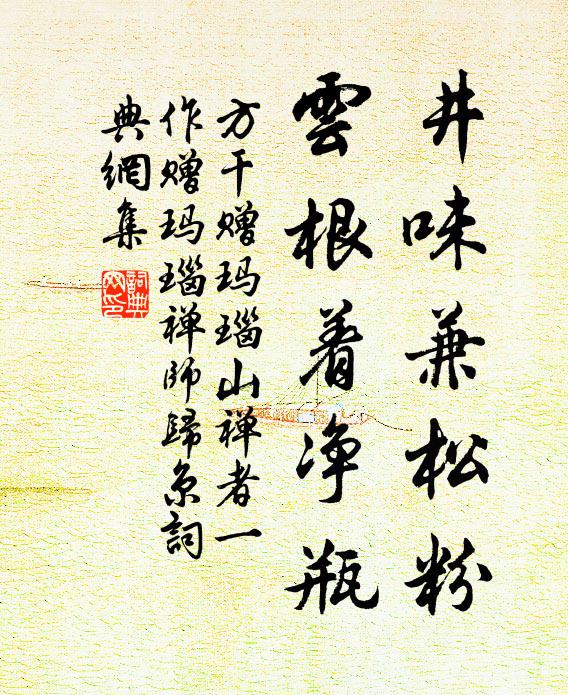 井味兼松粉
雲根着净瓶
方干赠玛瑙山禅者一
作赠玛瑙禅师歸京詞
典網集
詞典
网印